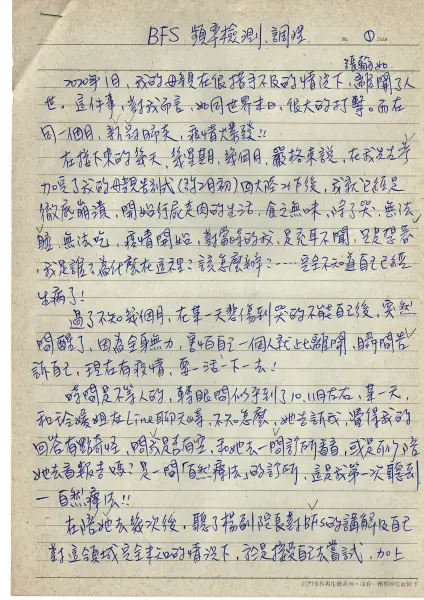 BFS 頻率檢測、調理
No ① Date
張毓如
2020年1月,我的母親在很措手不及的情況下,離開了人
世。這件事,對我而言,如同世界末日,很大的打擊。而在
同一個月,新冠肺炎,疫情爆發!!
在接下來的每天、幾星期、幾個月,嚴格來說,在我先生參
加完了我的母親告別式(228 2月初)回大陸之後,我就已經是
徹底崩潰,開始行屍走肉的生活,食之無味,除了哭,無法
睡,無法吃,疫情開始,對當時的我,是充耳不聞,只是想著
我是誰?為什麼在這裡?該怎麼辦?……完全不知道自己已經
生病了!
過了不知幾個月,在某一天悲傷到哭的不能自已後,突然
間醒了,因為全身無力,害怕自己一個人就此離開,瞬間告
訴自己,現在有疫情,要活下去!
時間是不等人的,轉眼間似乎到了10.11月左右,某一天,
和 媛姐友Line聊天時,不知怎麼,她告訴我,覺得我的
回答有點奇怪,問我是否有空,和她去一間診所看看,或是可以陪
她去看報告嗎?是一間「自然療法」的診所,這是我第一次聽到
—自然療法!!
在陪她去幾次後,聽了楊副院長對BFS的講解及自己
對這領域完全未知的情況下,於是接受自己去嘗試,加上